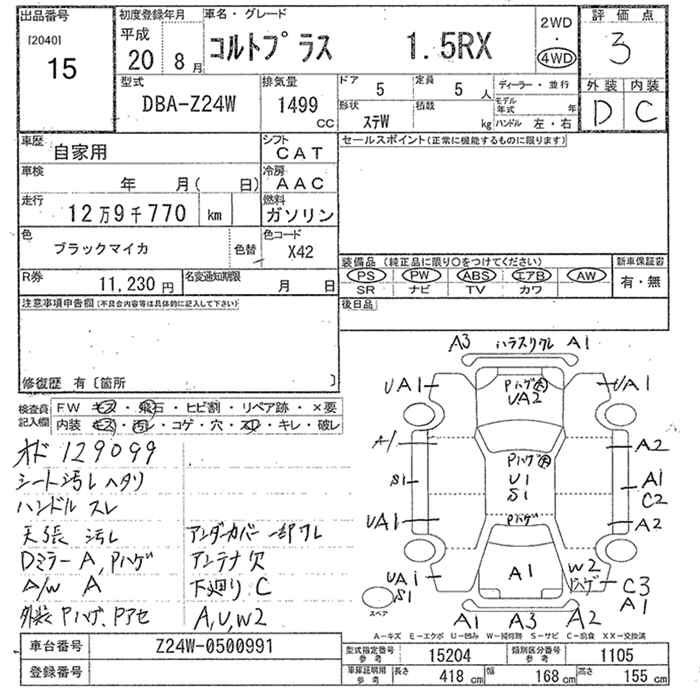 出品番号
[2040]
15
初度登録年月
平成
20 8月
車名・グレード
コルトプラス 1.5RX
2WD
・
4WD
評価点
3
外装 内装
D C
型式
DBA-Z24W
排気量
1499
CC
ドア
5
定員
5 人
形状
ステW
積載
kg
ディーラー・並行
モデル年式 年
ハンドル 左・右
車歴
自家用
シフト
CAT
車検
年 月( 日)
冷房
AAC
走行
12万9千770 km
燃料
ガソリン
色
ブラックマイカ
色替
色コード
X42
R券
11,230円
名変通知期限
月 日
セールスポイント(正常に機能するものに限ります)
装備品 (純正品に限り○をつけてください)
PS PW ABS エアB AW
SR ナビ TV カワ
新車保証書
有・無
後日品
注意事項申告欄(不具合内容等は具体的に記入して下さい)
修復歴 有〔箇所 〕
検査員記入欄
FW キズ・飛石・ヒビ割・リペア跡・×要
内装 キズ・汚レ・コゲ・穴・スレ・キレ・破レ
オド 129099
シート汚レ ヘタリ
ハンドル スレ
天張 汚レ
Dミラー A, Pハゲ
A/W A
外装 Pハゲ、Pアセ
アンダーカバー 一部ワレ
アンテナ欠
下廻り C
A,U,W2
A3 A1
UA1 Pハゲ UA1
UA2
A1 Pハゲ A2
S1 U1 A1
S1 C2
UA1 Pハゲ A2
UA1 A1 W2
S1 Pハゲ C3
A1
スペア
A1 A3 A2
A−キズ E−エクボ U−凹み W−補修跡 S−サビ C−腐食 XX−交換済
車台番号
Z24W-0500991
登録番号
型式指定番号
参考
15204
類別区分番号
参考
1105
車庫証明用
参考
長さ
418 cm
幅
168 cm
高さ
155 cm